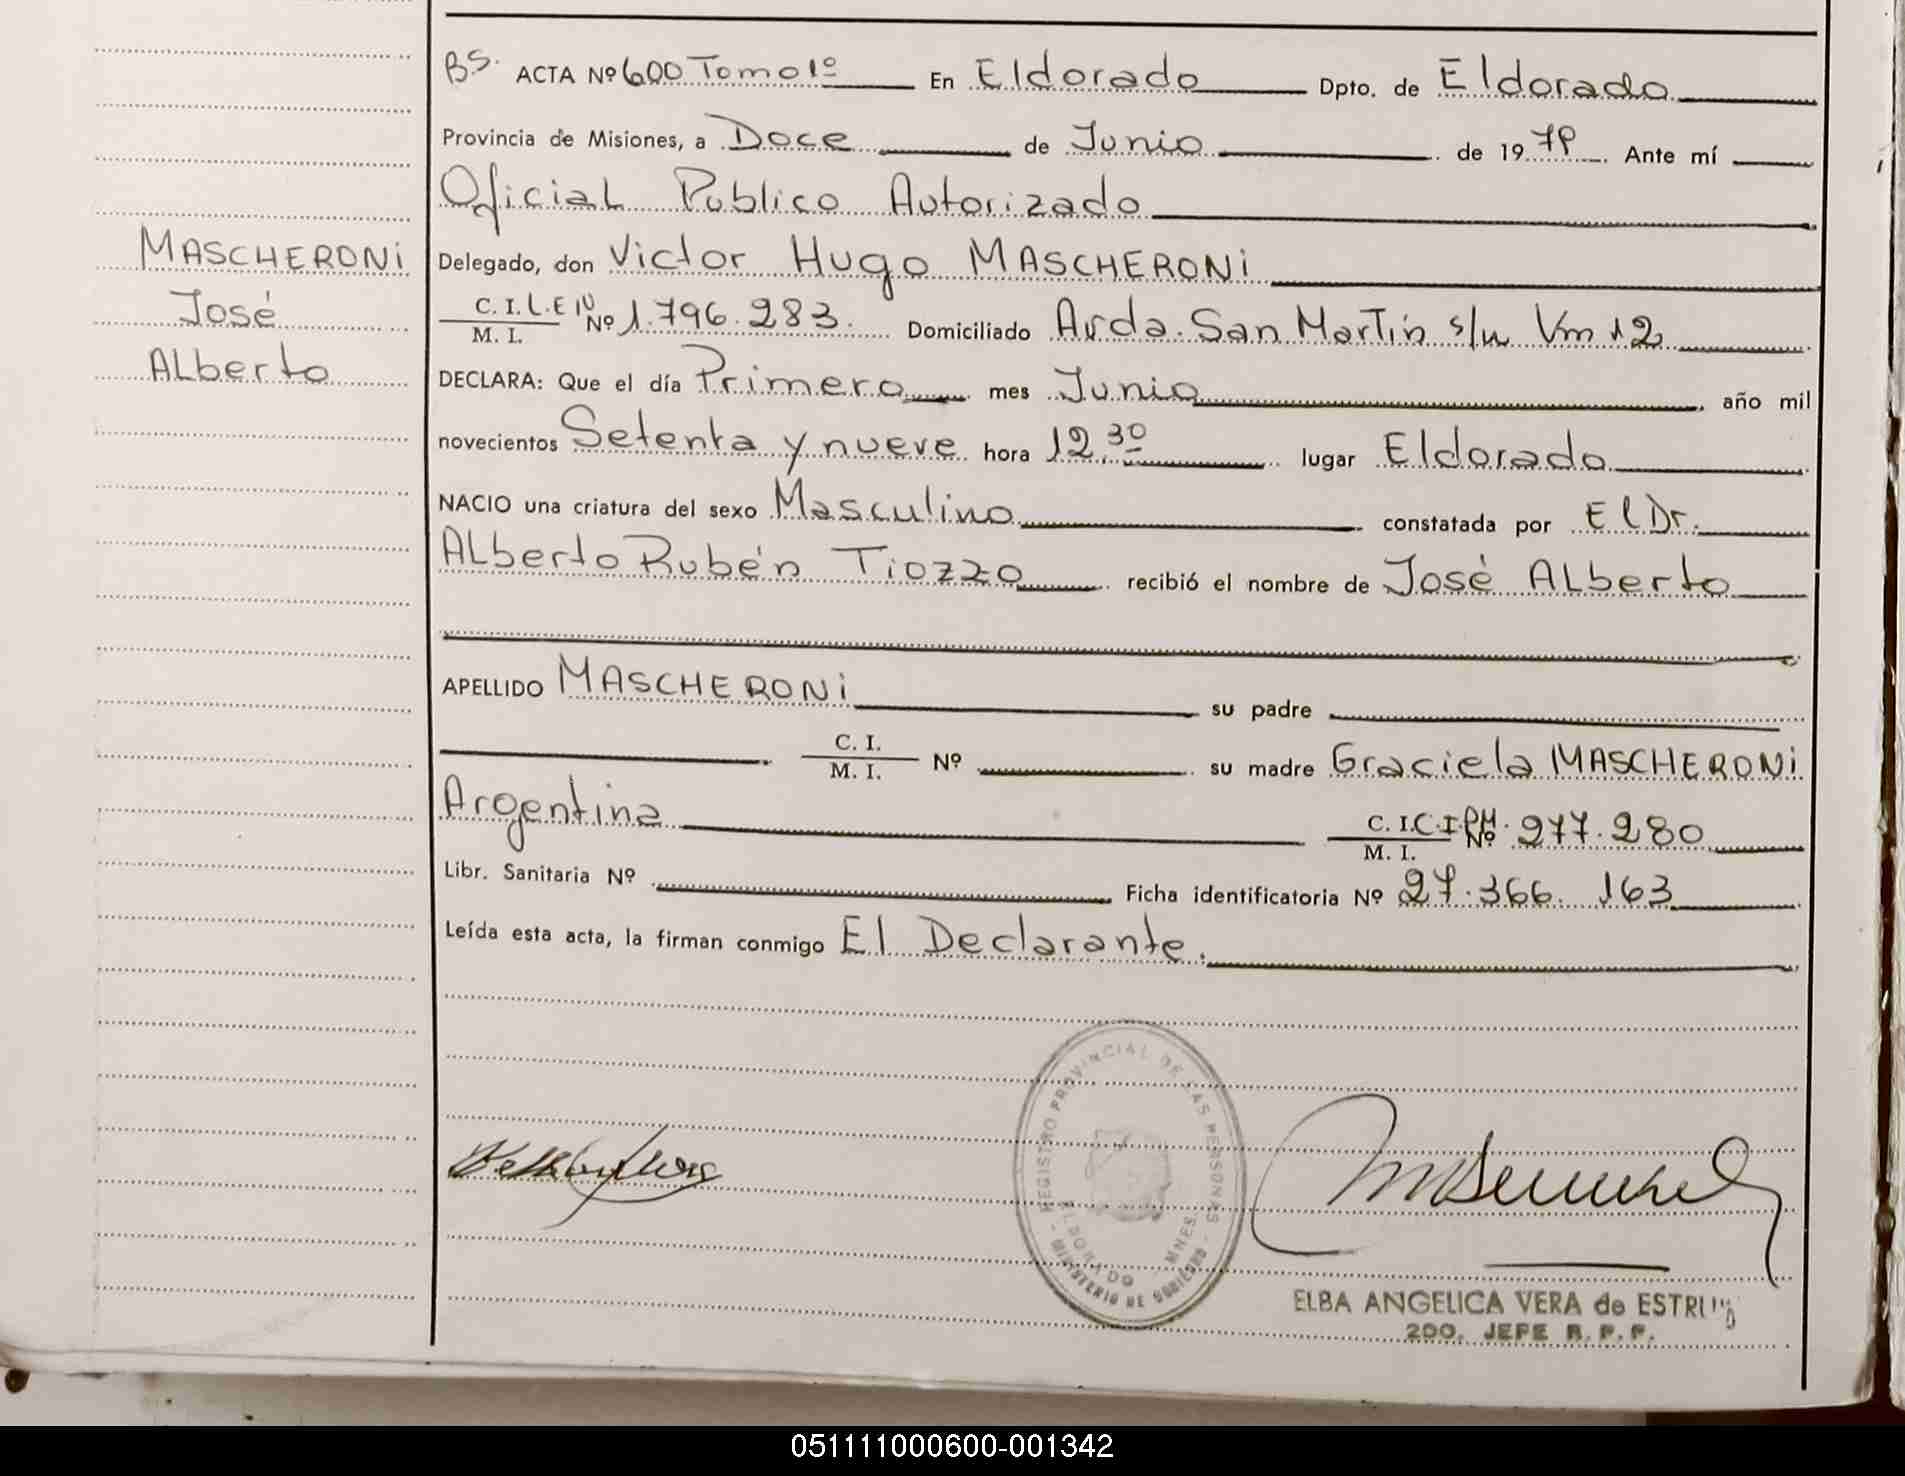 BS. ACTA Nº 600 Tomo 1º En Eldorado Dpto. de Eldorado
Provincia de Misiones, a Doce de Junio de 1979. Ante mí
Oficial Publico Autorizado
MASCHERONi
José
ALberto
Delegado, don Victor Hugo MASCHERONi
C. I. L.E Nº 1.796.283. Domiciliado Avda. San Martin s/n Vm 12
M. I.
DECLARA: Que el día Primero mes Junio, año mil
novecientos Setenta y nueve hora 12,30 lugar Eldorado
NACIO una criatura del sexo Masculino constatada por El Dr.
ALberto Rubén Tiozzo recibió el nombre de José ALberto
APELLIDO MASCHERONi su padre
C. I.
M. I. Nº su madre Graciela MASCHERONi
Argentina C. I. C.I. Nº 277.280
M. I.
Libr. Sanitaria Nº Ficha identificatoria Nº 27.366.163
Leída esta acta, la firman conmigo El Declarante.
REGISTRO PROVINCIAL DE LAS PERSONAS
MINISTERIO DE GOBIERNO
ELDORADO MNES.
ELBA ANGELICA VERA de
2DO. JEFE R. P. P.
051111000600-001342